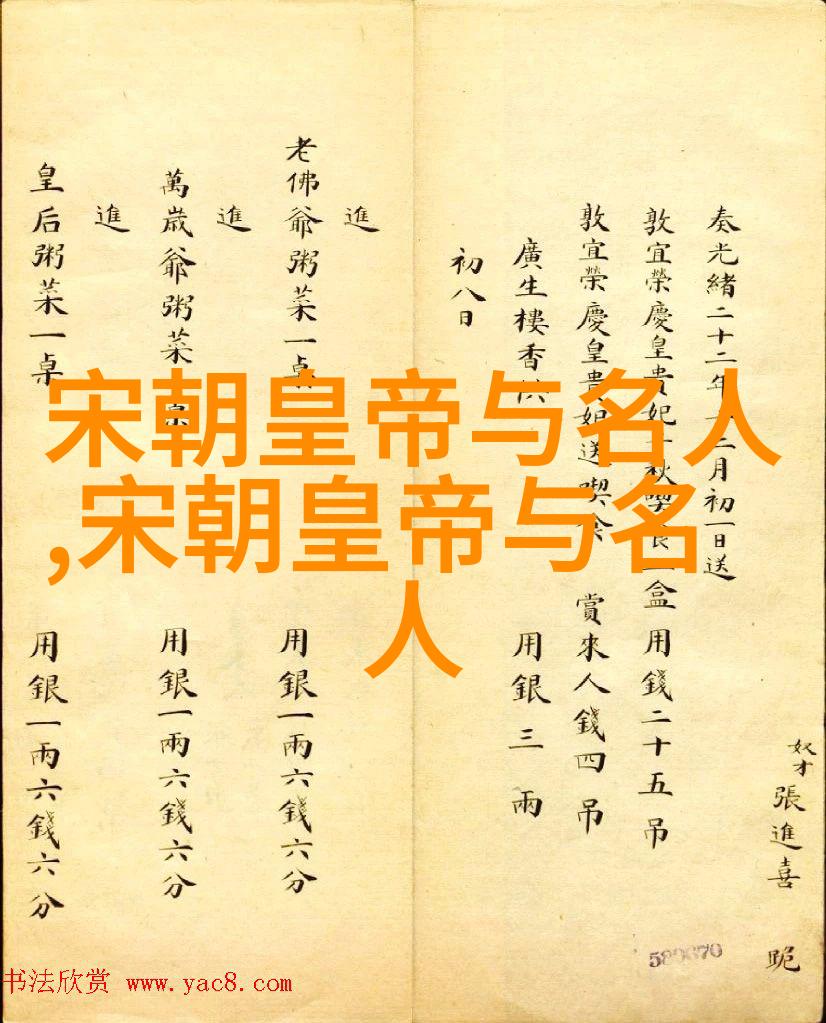 奴才張進喜 跪
奏光緒二十二年二月初一日送
敦宜榮慶皇貴妃千秋喫食一盒用錢二十五吊
敦宜榮慶皇貴妃送喫食 賞來人錢四吊
廣生樓香供 用銀三兩
初八日
進
老佛爺粥菜一桌 用銀一兩六錢六分
進
萬歲爺粥菜桌 用銀一兩六錢六分
進
皇后粥菜一桌 用銀一兩六錢六分
宋朝皇帝与名人
,宋朝皇帝与名
人
书法欣赏 www.yac8.com